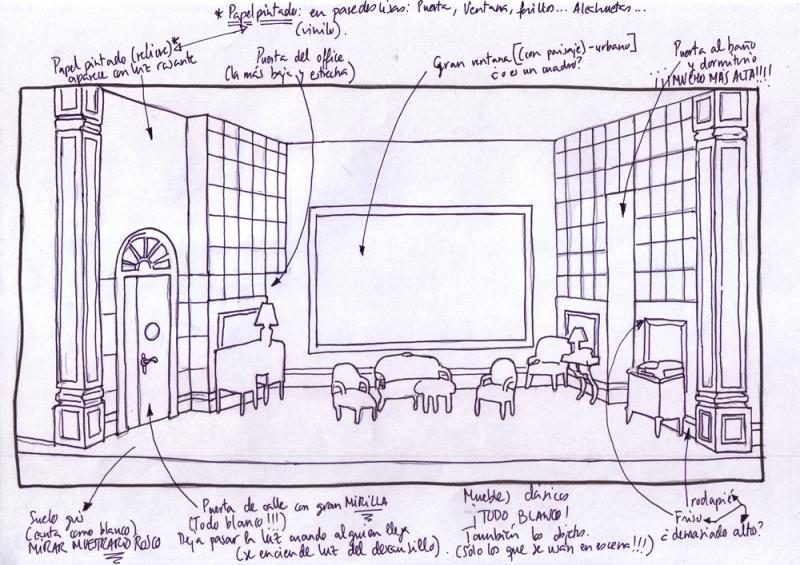 * Papel pintado: en paredes lisas: Puerta, Ventana, frisos... Alechuetas...
(vinilo).
Papel pintado (relieve)*
aparece con luz rasante
Puerta del office
(la más baja y estrecha)
Gran ventana [(con paisaje)-urbano]
¿o es un cuadro?
Puerta al baño
y dormitorio
¡¡¡MUCHO MAS ALTA!!!!
Suelo gris
(canta como blanco)
MIRAR MUESTRARIO ROSCO
Puerta de calle con gran MIRILLA
(Todo blanco!!!)
Deja pasar la luz cuando alguien llega
(se enciende luz del descansillo).
Muebles clásicos
¡TODO BLANCO!
También los objetos.
(Sólo los que se usan en escena!!!)
rodapié
Friso
¿demasiado alto?